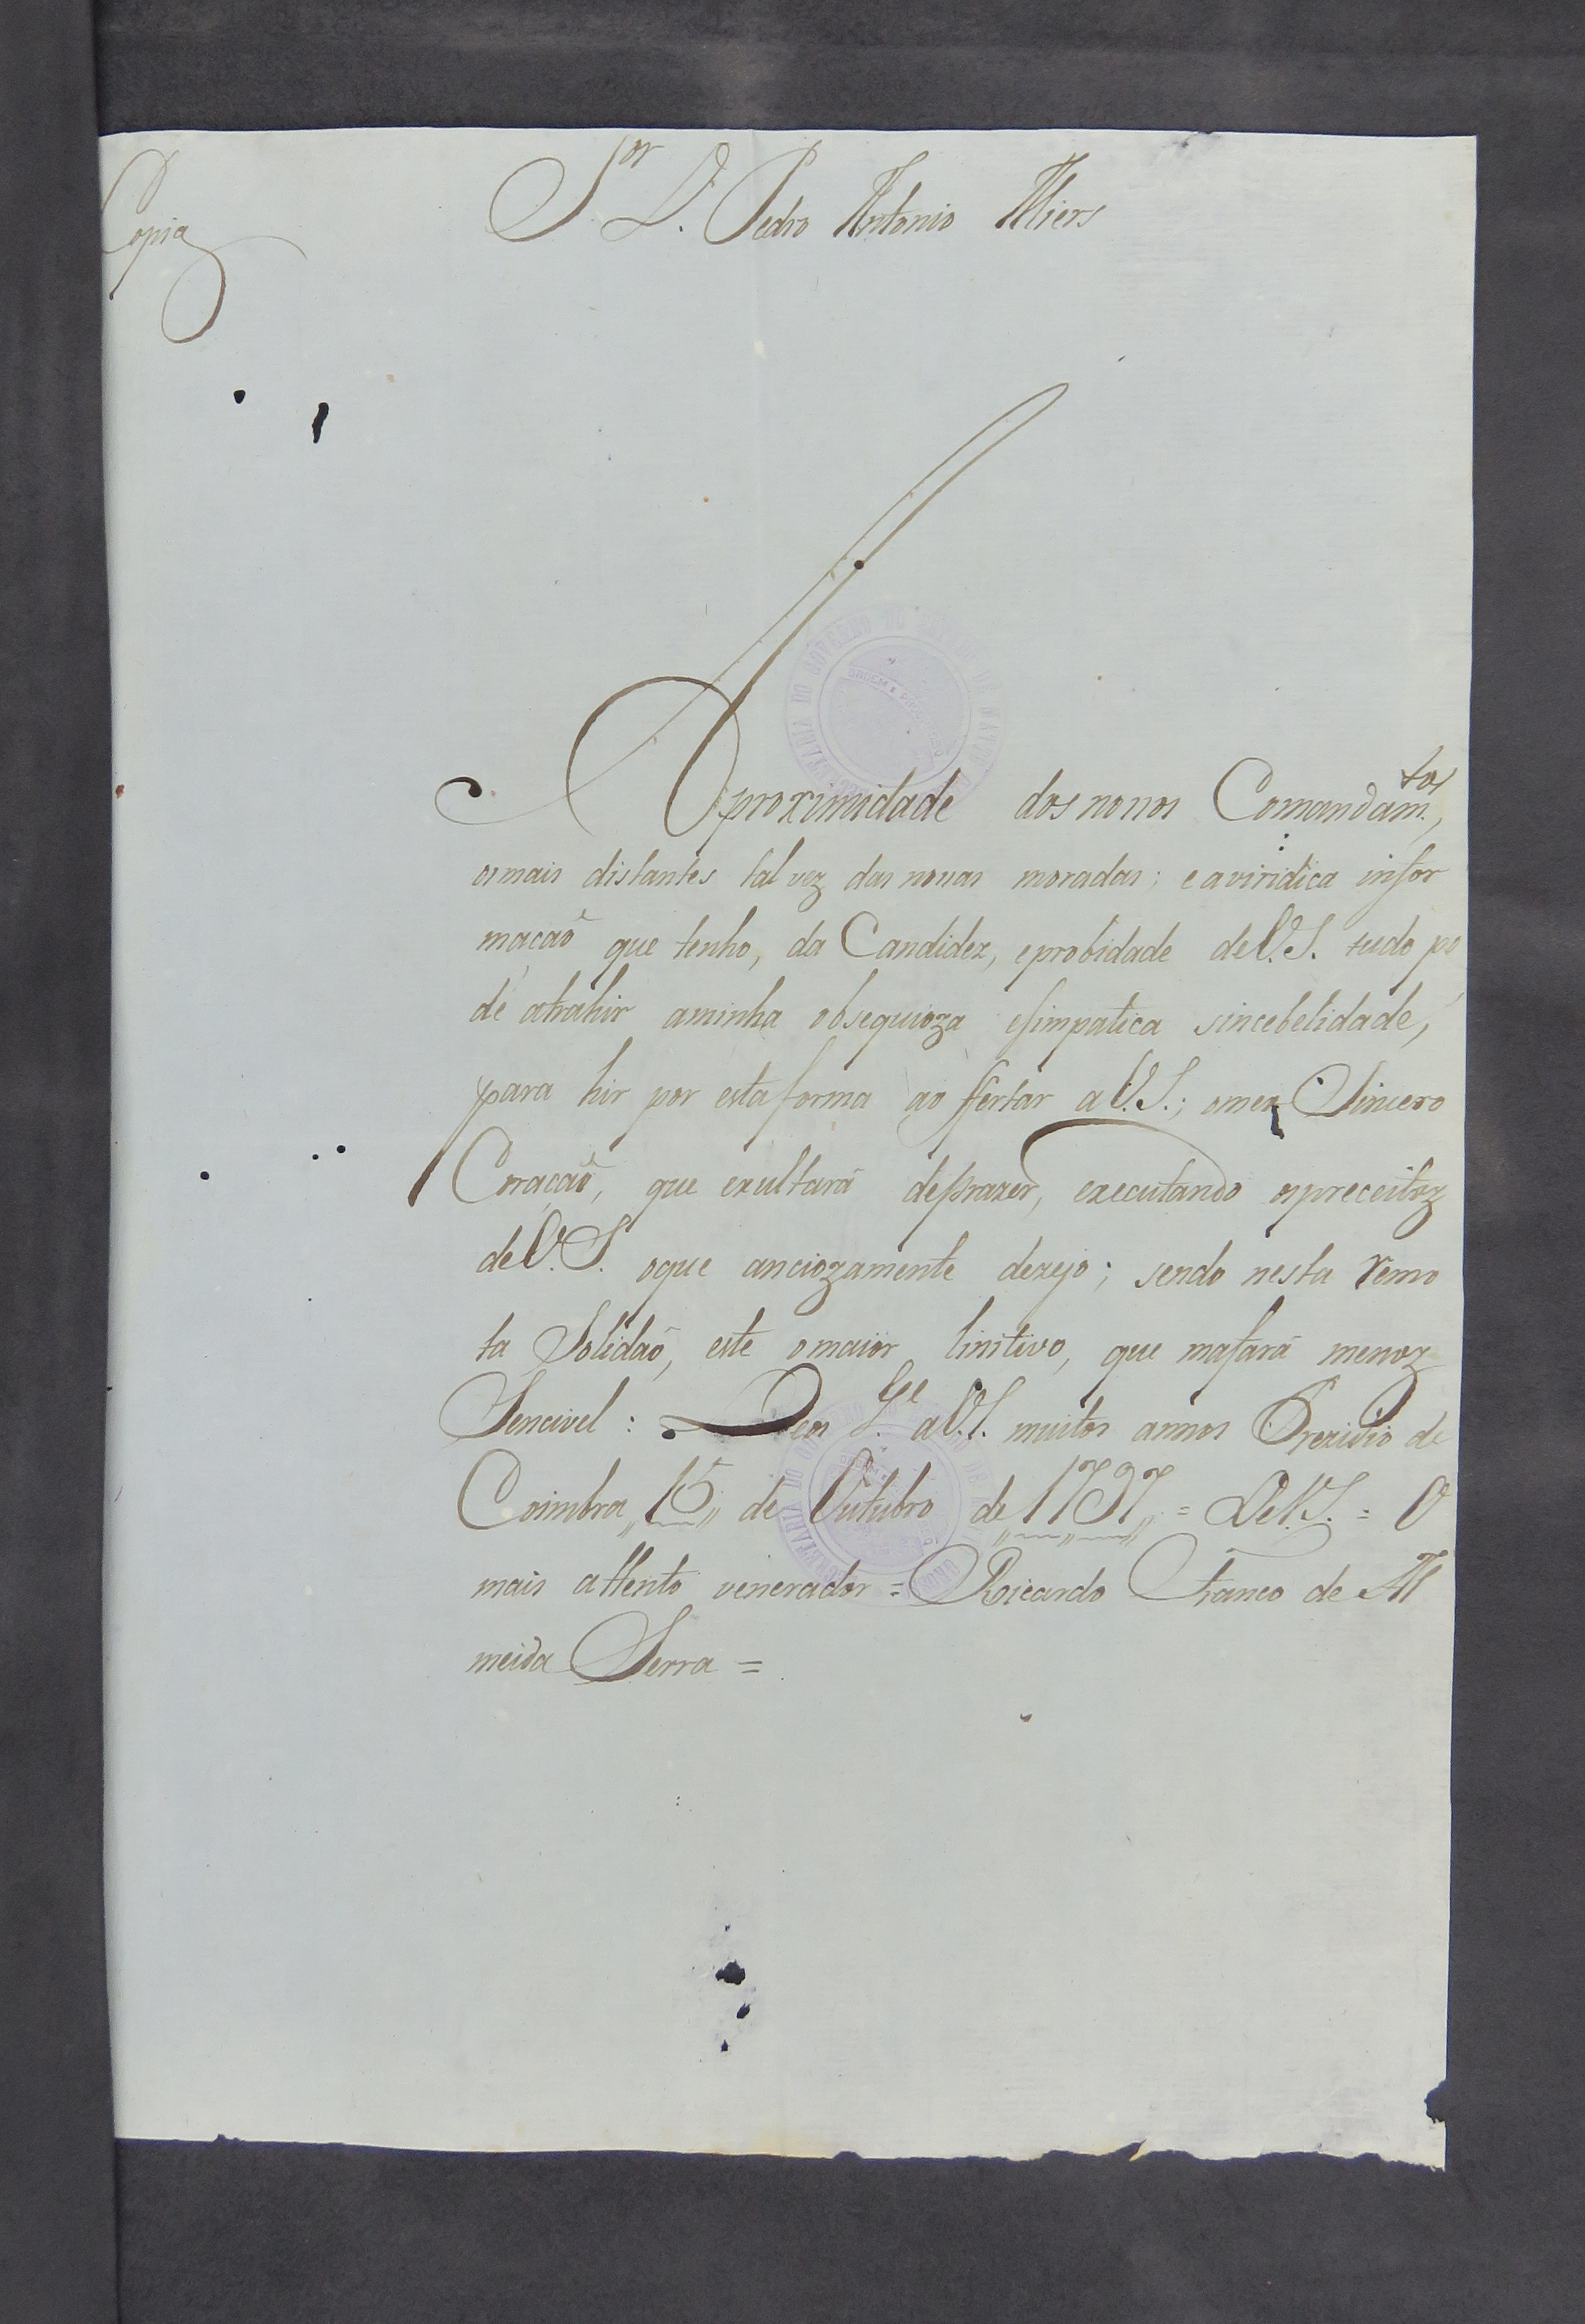 Copia
Sor D. Pedro Antonio Miers
Aproximidade dos nonos Comandamtos,
os mais distantes tal vez das nonas moradas; e aviridica infor
macaõ que tenho, da Candidez, eprobidade deV.S. tudo po
de atrahir aminha obsequioza esimpatica sincebelidade,
para hir por esta forma ao ffertar aV.S.; omeu Sincero
Coraçaõ, que exultará deprazer, executando ospreceitoz
deV.S. oque anciozamente dezejo; sendo nesta remo
ta Solidaõ, este omaior linitivo, que mafará menoz
Sencivel: Deos Ge aV.S. muitos annos Prezidio de
Coimbra „15„ de Outubro de „1797„ = DeV.S. = O
mais attento venerador = Ricardo Franco de Al
meida Serra =